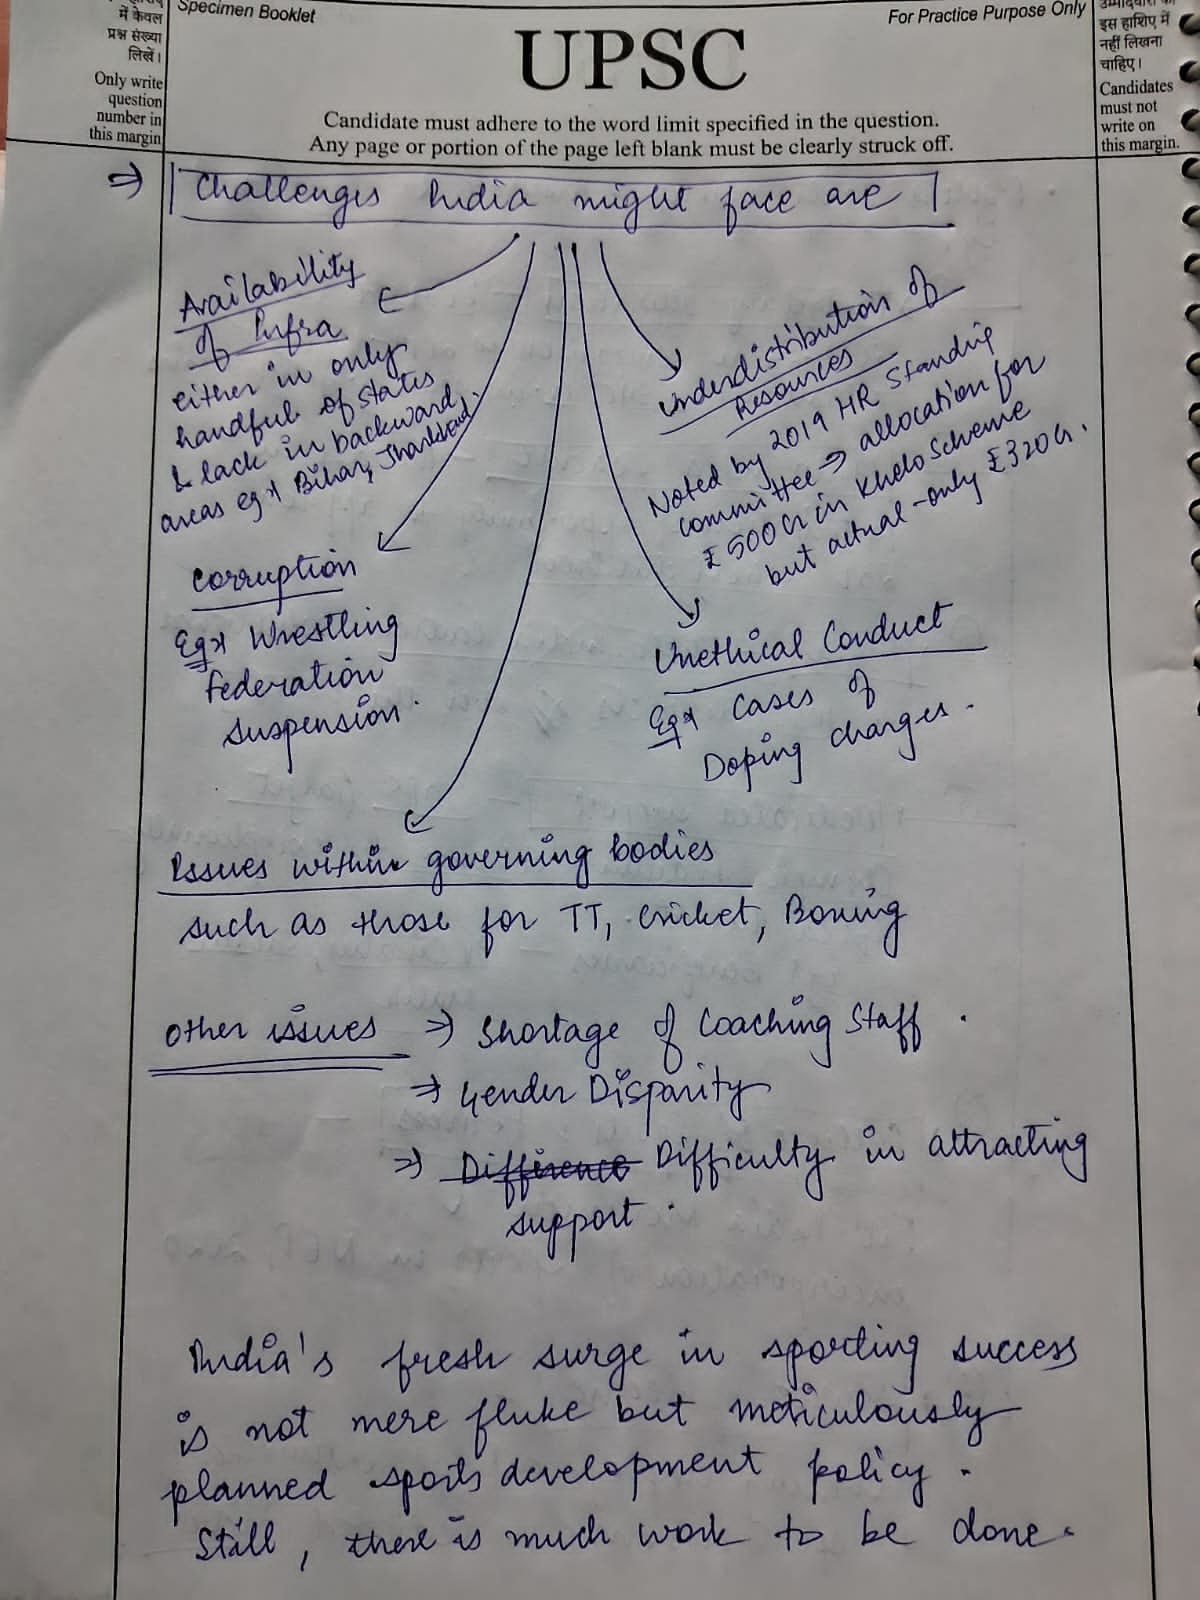 में केवल
प्रश्न संख्या
लिखें।
Only write
question
number in
this margin
Specimen Booklet
For Practice Purpose Only
UPSC
Candidate must adhere to the word limit specified in the question.
Any page or portion of the page left blank must be clearly struck off.
उम्मीदवारों को
इस हाशिए में
नहीं लिखना
चाहिए।
Candidates
must not
write on
this margin.
⇒ Challenges India might face are
Availability
of Infra
either in only
handful of states
& lack in backward
areas eg Bihar, Jharkhand.
Underdistribution of
Resources
Noted by 2019 HR Standing
committee ⇒ allocation for
₹500 Cr in Khelo Scheme
but actual - only ₹320 Cr.
Corruption
Eg Wrestling
Federation
Suspension.
Unethical Conduct
Eg Cases of
Doping charges.
Issues within governing bodies
such as those for TT, Cricket, Boxing
Other issues ⇒ Shortage of Coaching Staff.
⇒ Gender Disparity
⇒ Difference Difficulty in attracting
support.
India's fresh surge in sporting success
is not mere fluke but meticulously
planned sports development policy.
Still, there is much work to be done.